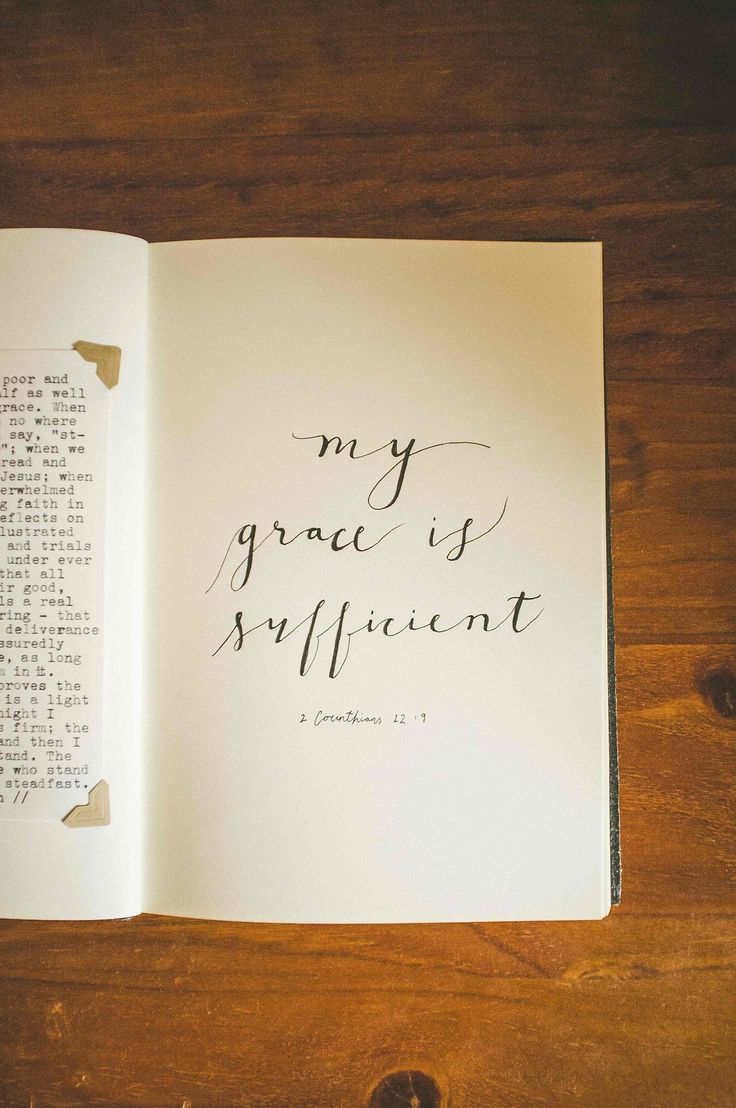 poor and
as well
grace. When
no where
say, "st-
"; when we
read and
Jesus; when
faith in
and trials
under ever
that all
good,
a real
- that
deliverance
, as long
in it.
the
is a light
I
firm; the
and then I
The
who stand
steadfast.
//
my
grace is
sufficient
2 Corinthians 12:9